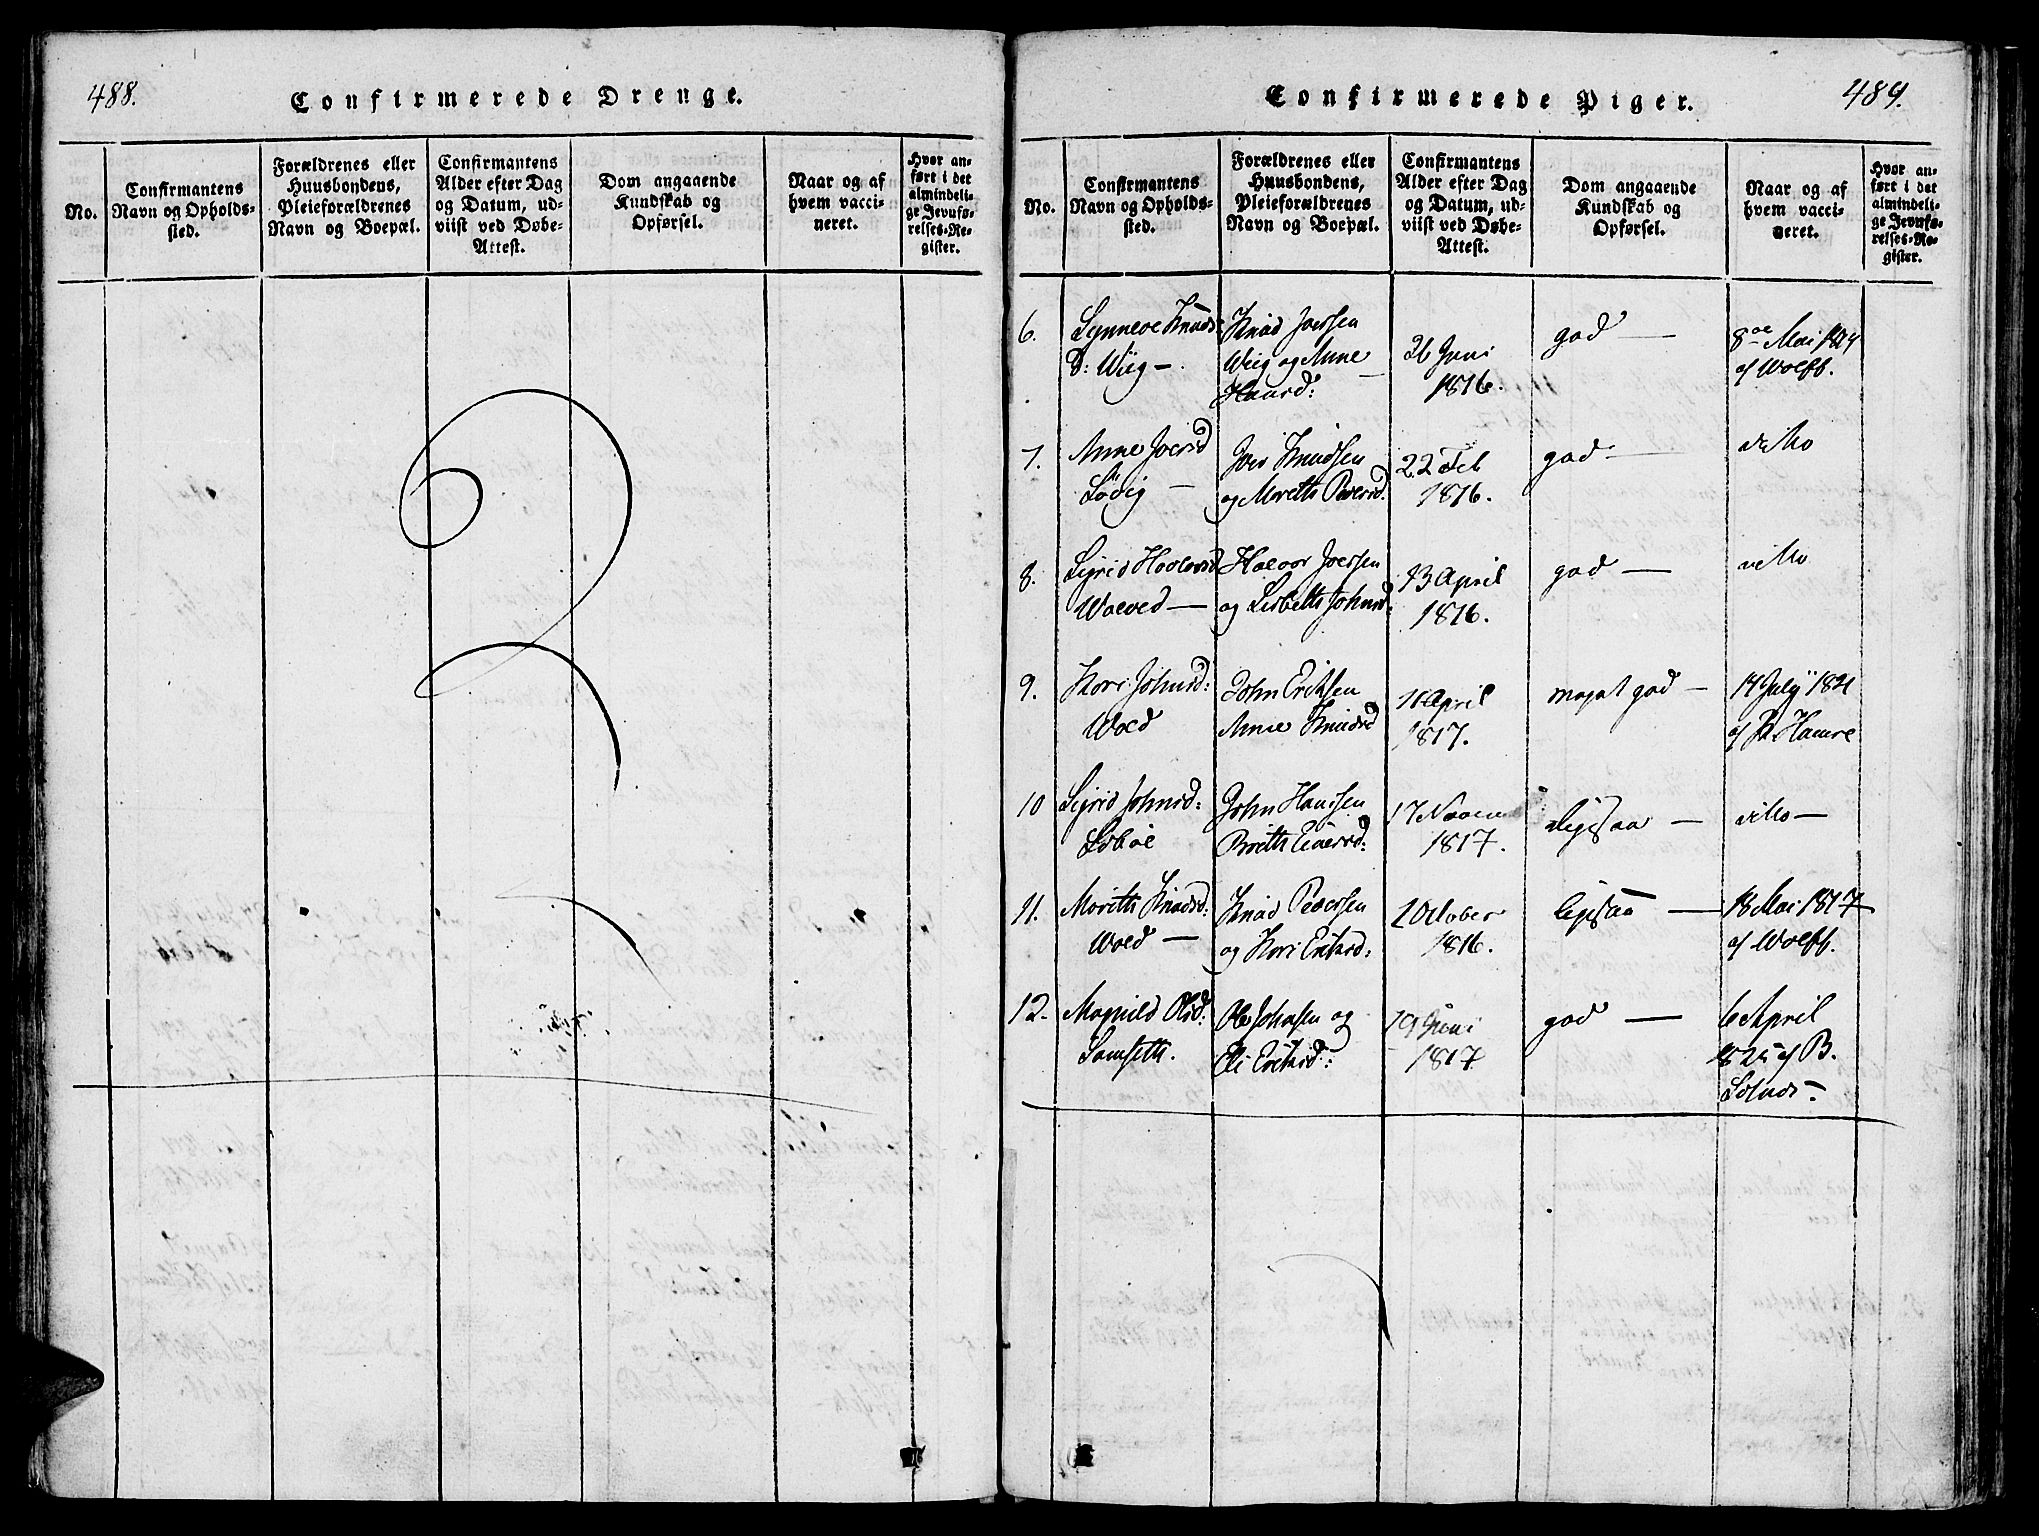 488.
Confirmerede Drenge.
No.
Confirmantens
Navn og Opholds-
sted.
Forældrenes eller
Huusbondens,
Pleieforældrenes
Navn og Boepæl.
Confirmantens
Alder efter Dag
og Datum, ud-
viist ved Døbe-
Attest.
Dom angaaende
Kundskab og
Opførsel.
Naar og af
hvem vacci-
neret.
Hvor an-
ført i det
almindeli-
ge Jevnfø-
relses-Re-
gister.
489.
Confirmerede Piger.
No.
Confirmantens
Navn og Opholds-
sted.
Forældrenes eller
Huusbondens,
Pleieforældrenes
Navn og Boepæl.
Confirmantens
Alder efter Dag
og Datum, ud-
viist ved Døbe-
Attest.
Dom angaaende
Kundskab og
Opførsel.
Naar og af
hvem vacci-
neret.
Hvor an-
ført i det
almindeli-
ge Jevnfø-
relses-Re-
gister.
6.
Synneve Knuds
D: Wiig -
Knud Iversen
Wiig og Anne
26 Juni
1816.
god -
Mai
af Wolff.
7.
Anne Iversd
Iver Knudsen
og Mereth Pedersd.
22 Feb
1816.
god -
8.
Sigrid
Halvor Iversen
og Lisbeth Johnsd:
13 April
1816.
god -
9.
Kari Johnsd:
Wold
John Eriksen
Anne Knudsd
11 April
1817.
meget god -
17 July 1821
af P. Hamre
10
Sigrid Johnsd:
John Hansen
17 Novem
1817.
ligesaa -
11.
Mereth Knudsd:
Wold -
Knud Pedersen
og Kari Eriksd:
October
1816.
ligesaa -
18 Mai 1817
af Wolff.
12.
Magnild Olsd:
Ole Johnsen og
Eli Eriksd:
19 Juni
1817
god -
6 April
1825 af B.